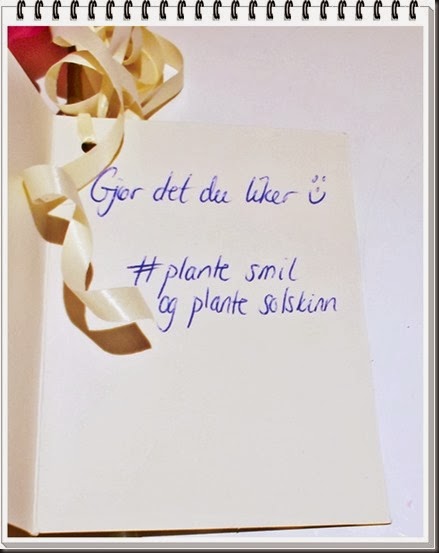 Gjør det du liker ☺
#plante smil
og plante solskinn